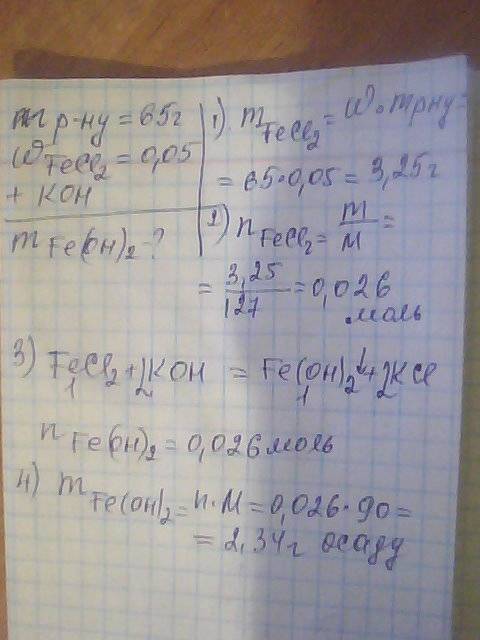 m р-ну = 65г
W FeCl2 = 0,05
+ KOH
m Fe(OH)2 - ?
1) m FeCl2 = W · m рну =
= 65·0,05 = 3,25г
2) n FeCl2 = m/M =
= 3,25/127 = 0,026
моль
3) FeCl2 + 2KOH = Fe(OH)2↓ + 2KCl
1 2 1 2
n Fe(OH)2 = 0,026 моль
4) m Fe(OH)2 = n·M = 0,026·90 =
= 2,34г осаду